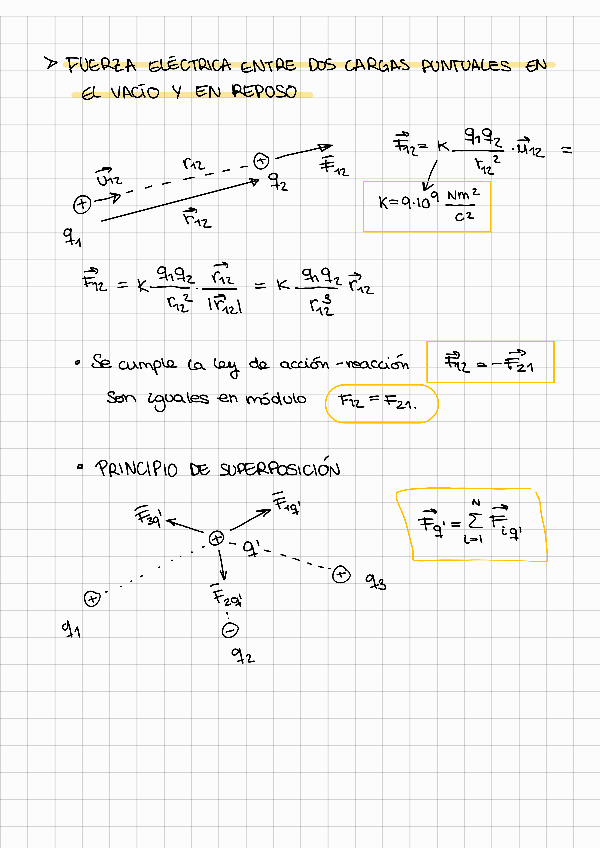 > FUERZA ELÉCTRICA ENTRE DOS CARGAS PUNTUALES EN
EL VACÍO Y EN REPOSO
u⃗12 r12 F⃗12
q1 r⃗12 q2
F⃗12 = K q1q2/r12² · u⃗12 =
K = 9·10⁹ Nm²/C²
F⃗12 = K q1q2/r12² · r⃗12/|r⃗12| = K q1q2/r12³ r⃗12
• Se cumple la ley de acción-reacción F⃗12 = -F⃗21
Son iguales en módulo F12 = F21.
• PRINCIPIO DE SUPERPOSICIÓN
F⃗3q' F⃗1q'
F⃗q' = Σ_{i=1}^{N} F⃗iq'
q'
F⃗2q' q3
q1
q2